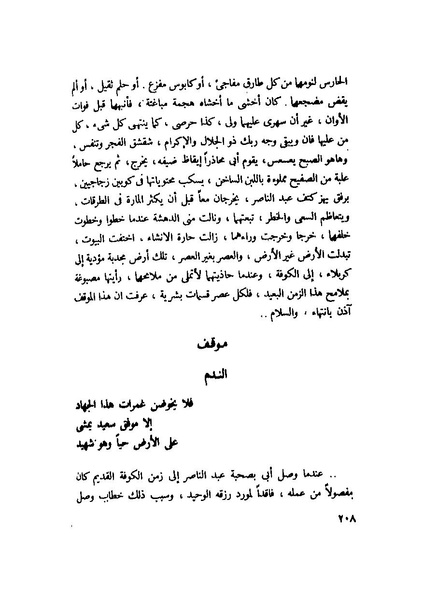 الحارس لنومها من كل طارق مفاجئ ، أو كابوس مفزع . أو حلم ثقيل ، أو ألم
يقض مضجعها . كان أخشى ما أخشاه هجمة مباغتة ، فأنبهها قبل فوات
الأوان ، غير أن سهرى عليهما ولى ، كذا حرصى ، كما ينتهى كل شىء ، كل
من عليها فان ويبقى وجه ربك ذو الجلال والإكرام ، شقشق الفجر وتنفس .
وهاهو الصبح يعسعس ، يقوم أبى محاذراً إيقاظ ضيفه ، يخرج ، ثم يرجع حاملاً
علبة من الصفيح مملوءة باللبن الساخن ، يسكب محتوياتها فى كوبين زجاجيين ،
برفق يهز كتف عبد الناصر ، يخرجان معاً قبل أن يكثر المارة فى الطرقات .
ويتعاظم السعى والخطر ، تبعتهما ، ونالت منى الدهشة عندما خطوا وخطوت
خلفهما ، خرجا وخرجت وراءهما ، زالت حارة الانشاء ، اختفت البيوت ،
تبدلت الأرض غير الأرض ، والعصر بغير العصر ، تلك أرض مجدبة مؤدية إلى
كربلاء ، إلى الكوفة ، وعندما حاذيتهما لأتملى من ملامحهما ، رأيتها مصبوغة
بملامح هذا الزمن البعيد ، فلكل عصر قسمات بشرية ، عرفت ان هذا الموقف
آذن بانتهاء ، والسلام ..
موقف
الندم
فلا يخوضن غمرات هذا الجهاد
إلا موفق سعيد يمشى
على الأرض حياً وهو شهيد
.. عندما وصل أبى بصحبة عبد الناصر إلى زمن الكوفة القديم كان
مفصولاً من عمله ، فاقداً لمورد رزقه الوحيد ، وسبب ذلك خطاب وصل
٢٠٨